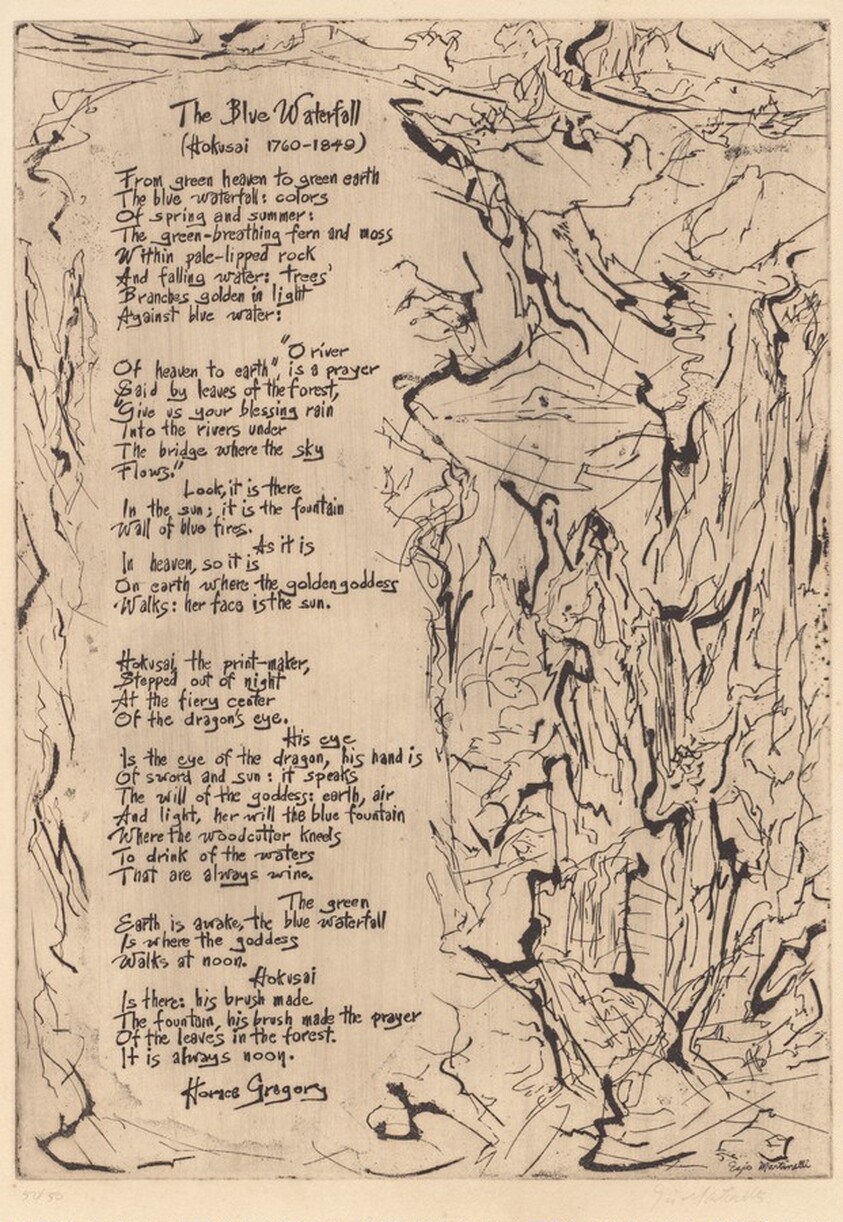 The Blue Waterfall
(Hokusai 1760-1849)
From green heaven to green earth
The blue waterfall: colors
Of spring and summer:
The green-breathing fern and moss
Within pale-lipped rock
And falling water: trees'
Branches golden in light
Against blue water:
"O river
Of heaven to earth", is a prayer
Said by leaves of the forest,
"Give us your blessing rain
Into the rivers under
The bridge where the sky
Flows."
Look, it is there
In the sun; it is the fountain
Wall of blue fires.
As it is
In heaven, so it is
On earth where the golden goddess
Walks: her face is the sun.
Hokusai, the print-maker,
Stepped out of night
At the fiery center
Of the dragon's eye.
His eye
Is the eye of the dragon, his hand is
Of sword and sun: it speaks
The will of the goddess: earth, air
And light, her will the blue fountain
Where the woodcutter kneels
To drink of the waters
That are always wine.
The green
Earth is awake, the blue waterfall
Is where the goddess
Walks at noon.
Hokusai
Is there: his brush made
The fountain, his brush made the prayer
Of the leaves in the forest.
It is always noon.
Horace Gregory
Ezio Martinelli